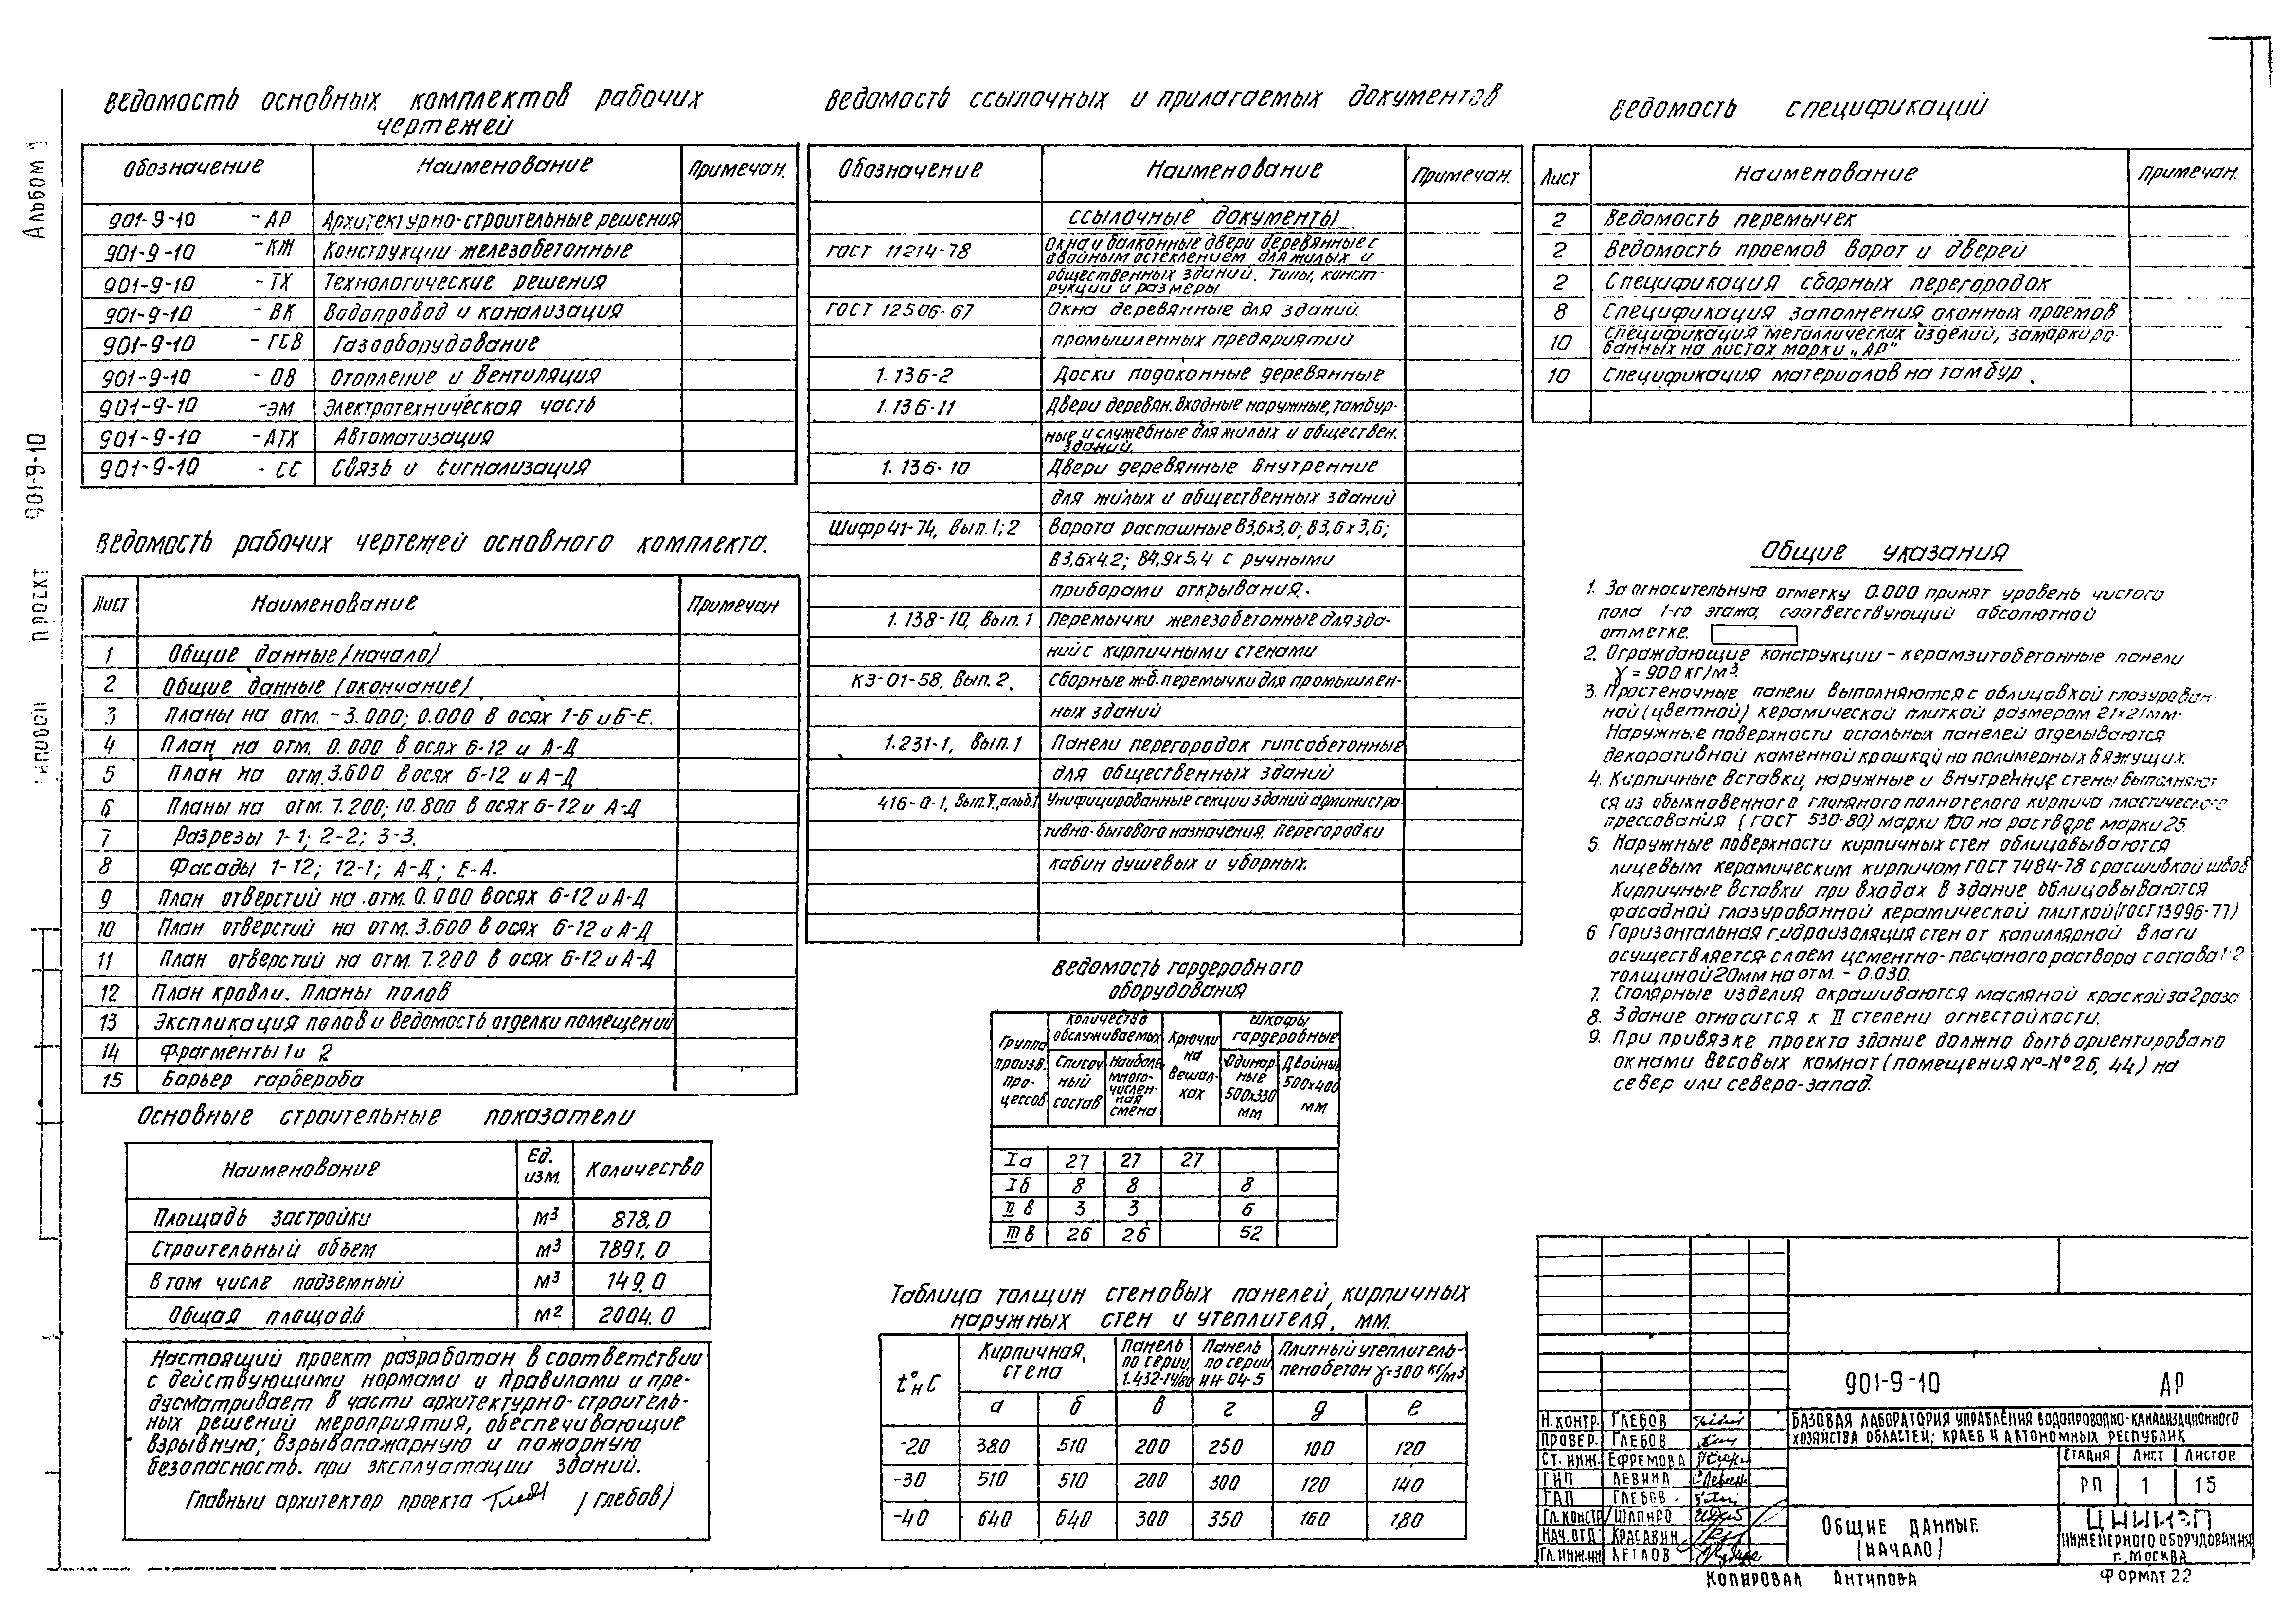 Альбом I
901-9-10
проект
Типовой
Ведомость основных комплектов рабочих
чертежей
Обозначение Наименование Примечан.
901-9-10 -АР Архитектурно-строительные решения
901-9-10 -КЖ Конструкции железобетонные
901-9-10 -ТХ Технологические решения
901-9-10 -ВК Водопровод и канализация
901-9-10 -ГСВ Газооборудование
901-9-10 -ОВ Отопление и вентиляция
901-9-10 -ЭМ Электротехническая часть
901-9-10 -АТХ Автоматизация
901-9-10 -СС Связь и сигнализация
Ведомость рабочих чертежей основного комплекта.
Лист Наименование Примечан
1 Общие данные (начало)
2 Общие данные (окончание)
3 Планы на отм. -3.000; 0.000 в осях 1-6 и Б-Е.
4 План на отм. 0.000 в осях 6-12 и А-Д
5 План на отм. 3.600 в осях 6-12 и А-Д
6 Планы на отм. 7.200; 10.800 в осях 6-12 и А-Д
7 Разрезы 1-1; 2-2; 3-3.
8 Фасады 1-12; 12-1; А-Д; Е-А.
9 План отверстий на отм. 0.000 в осях 6-12 и А-Д
10 План отверстий на отм. 3.600 в осях 6-12 и А-Д
11 План отверстий на отм. 7.200 в осях 6-12 и А-Д
12 План кровли. Планы полов
13 Экспликация полов и ведомость отделки помещений
14 Фрагменты 1 и 2
15 Барьер гардероба
Основные строительные показатели
Наименование Ед. изм. Количество
Площадь застройки м3 878.0
Строительный объем м3 7891.0
В том числе подземный м3 149.0
Общая площадь м2 2004.0
Настоящий проект разработан в соответствии
с действующими нормами и правилами и пре-
дусматривает в части архитектурно-строитель-
ных решений мероприятия, обеспечивающие
взрывную; взрывопожарную и пожарную
безопасность. при эксплуатации зданий.
Главный архитектор проекта /Глебов/
Ведомость ссылочных и прилагаемых документов
Обозначение Наименование Примечан.
Ссылочные документы
ГОСТ 11214-78 Окна и балконные двери деревянные с
двойным остеклением для жилых и
общественных зданий. Типы, конст-
рукции и размеры
ГОСТ 12506-67 Окна деревянные для зданий.
промышленных предприятий
1.136-2 Доски подоконные деревянные
1.136-11 Двери деревян. входные наружные, тамбур-
ные и служебные для жилых и обществен.
зданий.
1.136-10 Двери деревянные внутренние
для жилых и общественных зданий
Шифр 41-74, Вып. 1; 2 Ворота распашные В3,6х3,0; В3,6х3,6;
В3,6х4.2; В4,9х5,4 с ручными
приборами открывания.
1.138-10, Вып.1 Перемычки железобетонные для зда-
ний с кирпичными стенами
КЭ-01-58. Вып. 2. Сборные ж-б. перемычки для промышлен-
ных зданий
1.231-1, Вып.1 Панели перегородок гипсобетонные
для общественных зданий
416-0-1, Вып. V, альб. 1 Унифицированные секции зданий администра-
тивно-бытового назначения. Перегородки
кабин душевых и уборных.
Ведомость гардеробного
оборудования
Группа произв. про- цессов Количество обслуживаемых Крючки на вешал- ках Шкафы гардеробные
Списоч- ный состав Наиболе многочислен- ная смена Одинар- ные 500х330 мм Двойные 500х400 мм
Iа 27 27 27
Iб 8 8 8
IIв 3 3 6
IIIв 26 26 52
Таблица толщин стеновых панелей, кирпичных
наружных стен и утеплителя, мм.
t°н С Кирпичная, стена Панель по серии, 1.432-14/80 Панель по серии ИИ-04-5 Плитный утеплитель- пенобетон γ=300 кг/м3
а б в г д е
-20 380 510 200 250 100 120
-30 510 510 200 300 120 140
-40 640 640 300 350 160 180
Ведомость спецификаций
Лист Наименование Примечан.
2 Ведомость перемычек
2 Ведомость проемов ворот и дверей
2 Спецификация сборных перегородок
8 Спецификация заполнения оконных проемов
10 Спецификация металлических изделий, замаркиро-
ванных на листах марки „АР"
10 Спецификация материалов на тамбур.
Общие указания
1. За относительную отметку 0.000 принят уровень чистого
пола 1-го этажа, соответствующий абсолютной
отметке.
2. Ограждающие конструкции - керамзитобетонные панели
γ = 900 кг/м3.
3. Простеночные панели выполняются с облицовкой глазурован-
ной (цветной) керамической плиткой размером 21х21мм.
Наружные поверхности остальных панелей отделываются
декоративной каменной крошкой на полимерных вяжущих.
4. Кирпичные вставки, наружные и внутренние стены выполняют
ся из обыкновенного глиняного полнотелого кирпича пластического
прессования (ГОСТ 530-80) марки 100 на растворе марки 25.
5. Наружные поверхности кирпичных стен облицовываются
лицевым керамическим кирпичом ГОСТ 7484-78 с расшивкой швов
Кирпичные вставки при входах в здание облицовываются
фасадной глазурованной керамической плиткой (ГОСТ 13996-77)
6 Горизонтальная гидроизоляция стен от капиллярной влаги
осуществляется слоем цементно-песчаного раствора состава 1:2
толщиной 20мм на отм. -0.030.
7. Столярные изделия окрашиваются масляной краской за 2 раза
8. Здание относится к II степени огнестойкости.
9. При привязке проекта здание должно быть ориентировано
окнами весовых комнат (помещения №-№ 26, 44) на
север или северо-запад.
901-9-10 АР
Н.контр. Глебов
Провер. Глебов
Ст. инж. Ефремова
ГИП Левина
ГАП Глебов
Гл.констр Шапиро
Нач.отд. Красавин
Гл.инж.ин Кетаов
Базовая лаборатория управления водопроводно-канализационного
хозяйства областей; краев и автономных республик
Стадия Лист Листов
РП 1 15
Общие данные.
(начало)
ЦНИИЭП
инженерного оборудования
г. Москва
Копировал Антипова
Формат 22